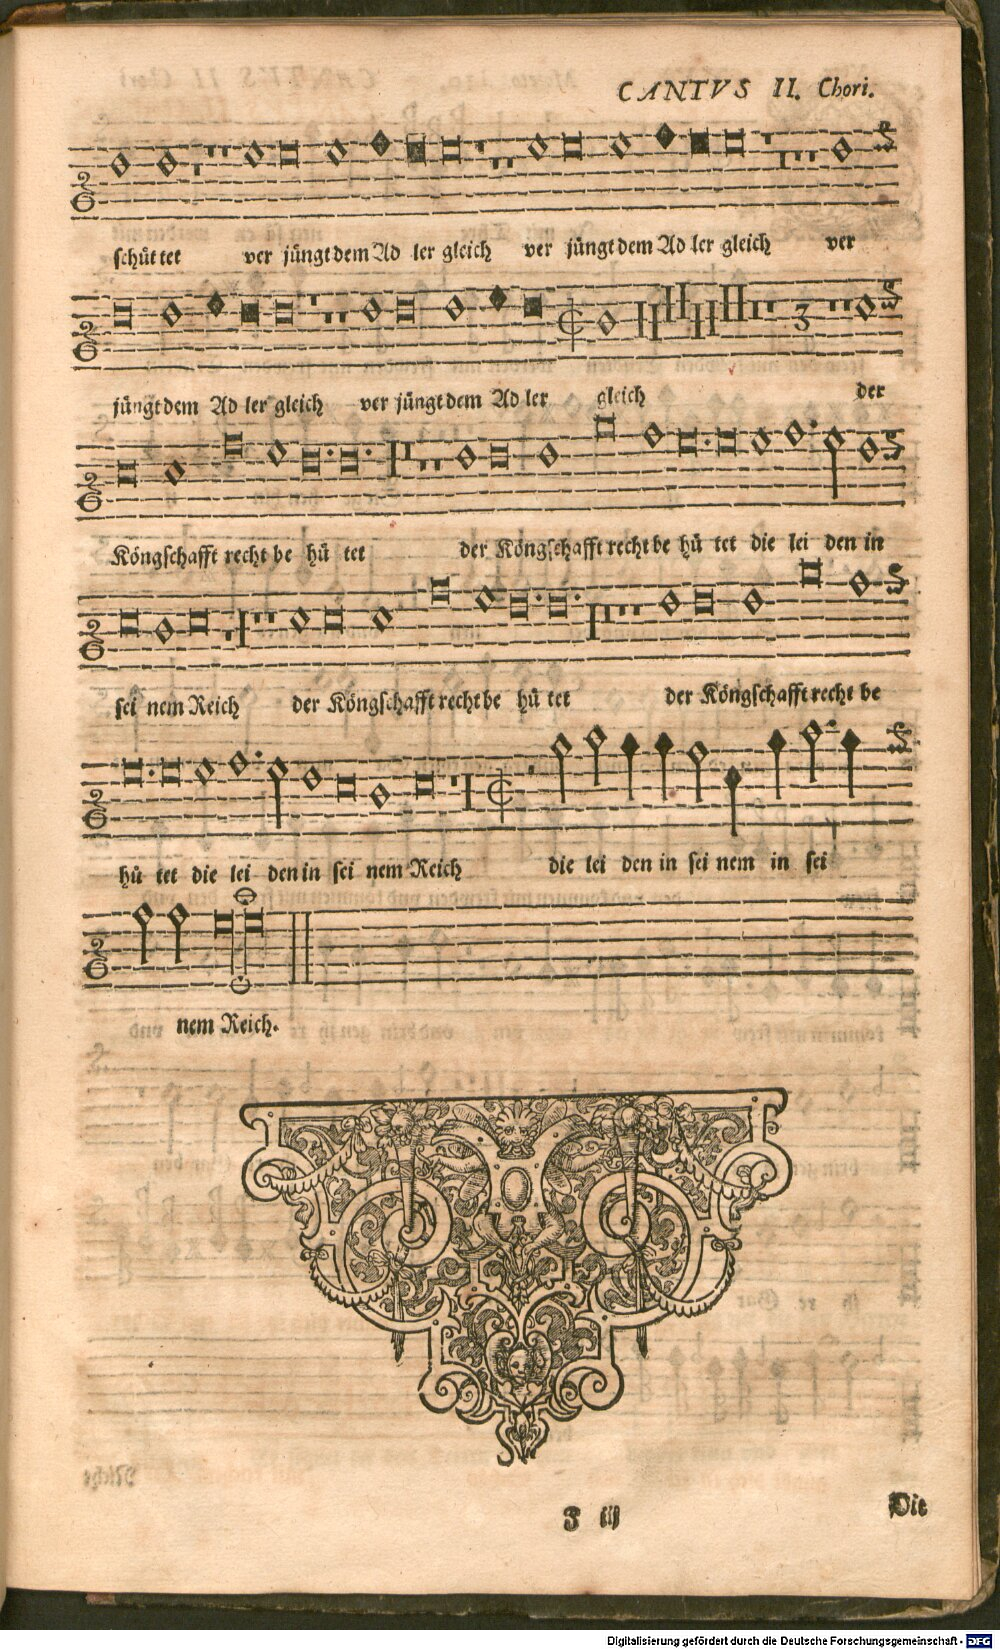 CANTVS II. Chori.
schüt tet ver jüngt dem Ad ler gleich ver jüngt dem Ad ler gleich ver
jüngt dem Ad ler gleich ver jüngt dem Ad ler gleich der
Köngschafft recht be hü tet der Köngschafft recht be hü tet die lei den in
sei nem Reich der Köngschafft recht be hü tet der Köngschafft recht be
hü tet die lei den in sei nem Reich die lei den in sei nem in sei
nem Reich.
Die
Digitalisierung gefördert durch die Deutsche Forschungsgemeinschaft - DFG